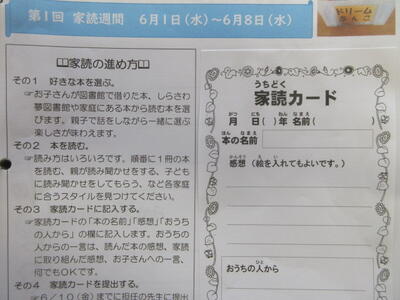 第1回 家読週間 6月1日(水)~6月8日(水)
ドリーム
家読の進め方
その1 好きな本を選ぶ。
☞お子さんが図書館で借りた本、しらさわ
夢図書館や家庭にある本から読む本を選
びます。親子で話をしながら一緒に選ぶ
楽しさが味わえます。
その2 本を読む。
☞読み方はいろいろです。順番に1冊の本
を読む、親が読み聞かせをする、子ども
に読み聞かせをしてもらう、など各家庭
に合うスタイルを見つけてください。
その3 家読カードに記入する。
☞家読カードの「本の名前」「感想」「おうち
の人から」の欄に記入します。おうちの
人からの一言は、読んだ本の感想、家読
に取り組んだ感想、お子さんへの一言、
何でもOKです。
その4 家読カードを提出する。
☞6/10(金)までに担任の先生に提出
うちどく
家読カード
がつ にち ねん なまえ
月 日( )年 名前(
ほん なまえ
本の名前
かんそう え い
感想(絵を入れてもよいです。)
ひと
おうちの人から